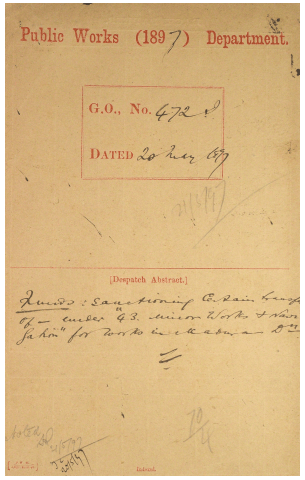 Public Works (1897) Department.
G.O., No. 472 I
DATED 20 May 1897
[Despatch Abstract.]
Funds: Sanctioning Certain transfer
of — under "43. Minor Works & Navi-
gation" for works in Madura Dn
70